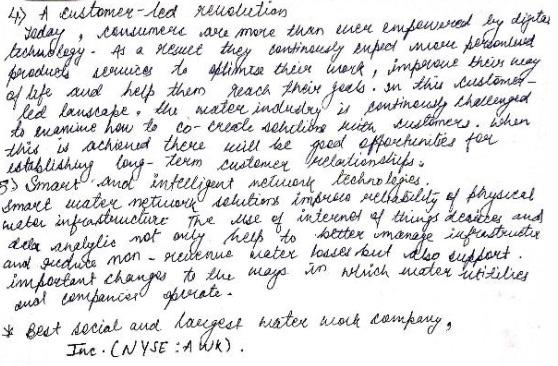 4) A customer-led revolution
Today, consumers are more than ever empowered by digital
technology. As a result they continously expect more personlised
products services to optimise their work, improve their way
of life and help them reach their goals. In this customer-
led lanscape. the water industry is continously challenged
to examine how to co-create solutions with customers. When
this is achieved there will be good opportunities for
establishing long-term customer relationships.
5) Smart and intelligent network technologies.
Smart water network solutions improve reliability of physical
water infrastructure The use of internet of things devices and
data analytic not only help to better manage infrastructure
and reduce non-revenue water losses but also support.
important changes to the ways in which water utilities
and companies operate.
* Best social and largest water work company,
Inc. (NYSE: AWK).